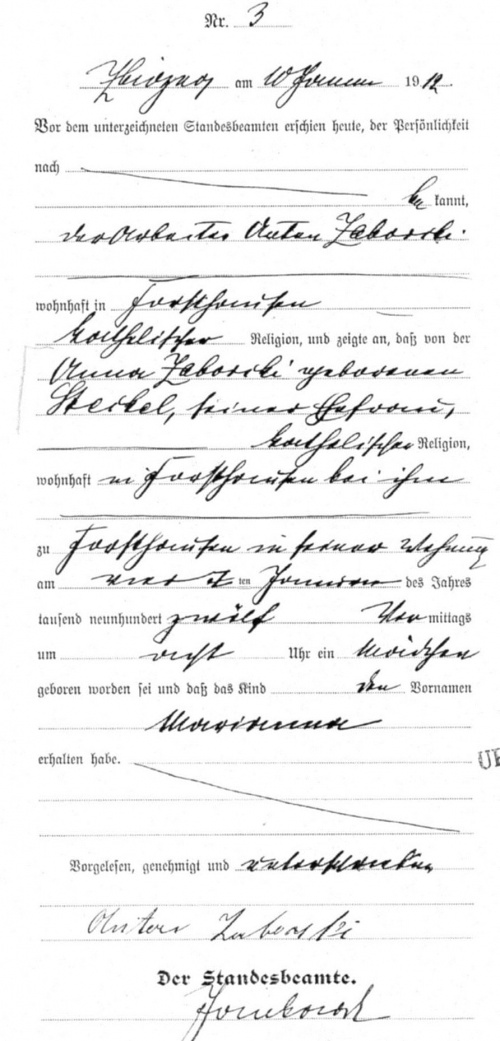 Nr. 3
am 10 Januar 1912.
Vor dem unterzeichneten Standesbeamten erschien heute, der Persönlichkeit
nach
be kannt,
der Arbeiter Anton Zaborski
wohnhaft in Forsthausen
katholischer Religion, und zeigte an, daß von der
Anna Zaborski geborenen
Steikel, seiner Ehefrau,
katholischer Religion,
wohnhaft in Forsthausen bei ihm
zu Forsthausen in seiner Wohnung
am vier ten Januar des Jahres
tausend neunhundert zwölf Vor mittags
um acht Uhr ein Mädchen
geboren worden sei und daß das Kind den Vornamen
Marianna
erhalten habe.
Vorgelesen, genehmigt und unterschrieben
Anton Zaborski
Der Standesbeamte.